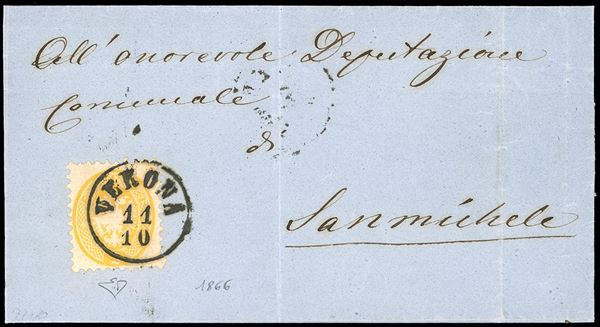 All' onorevole Deputazione
Comunale
di
San michele
VERONA
11
10
1866